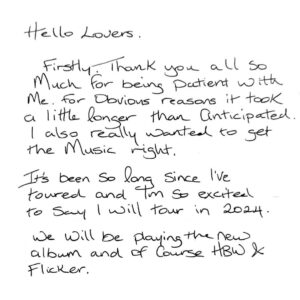 Hello Lovers.
Firstly, Thank you all so
Much for being Patient with
Me. For Obvious reasons it took
a little longer than Anticipated.
I also really wanted to get
the Music right.
It's been so long since I've
toured and I'm so excited
to Say I will tour in 2024.
We will be playing the new
album and of Course HBW &
Flicker.